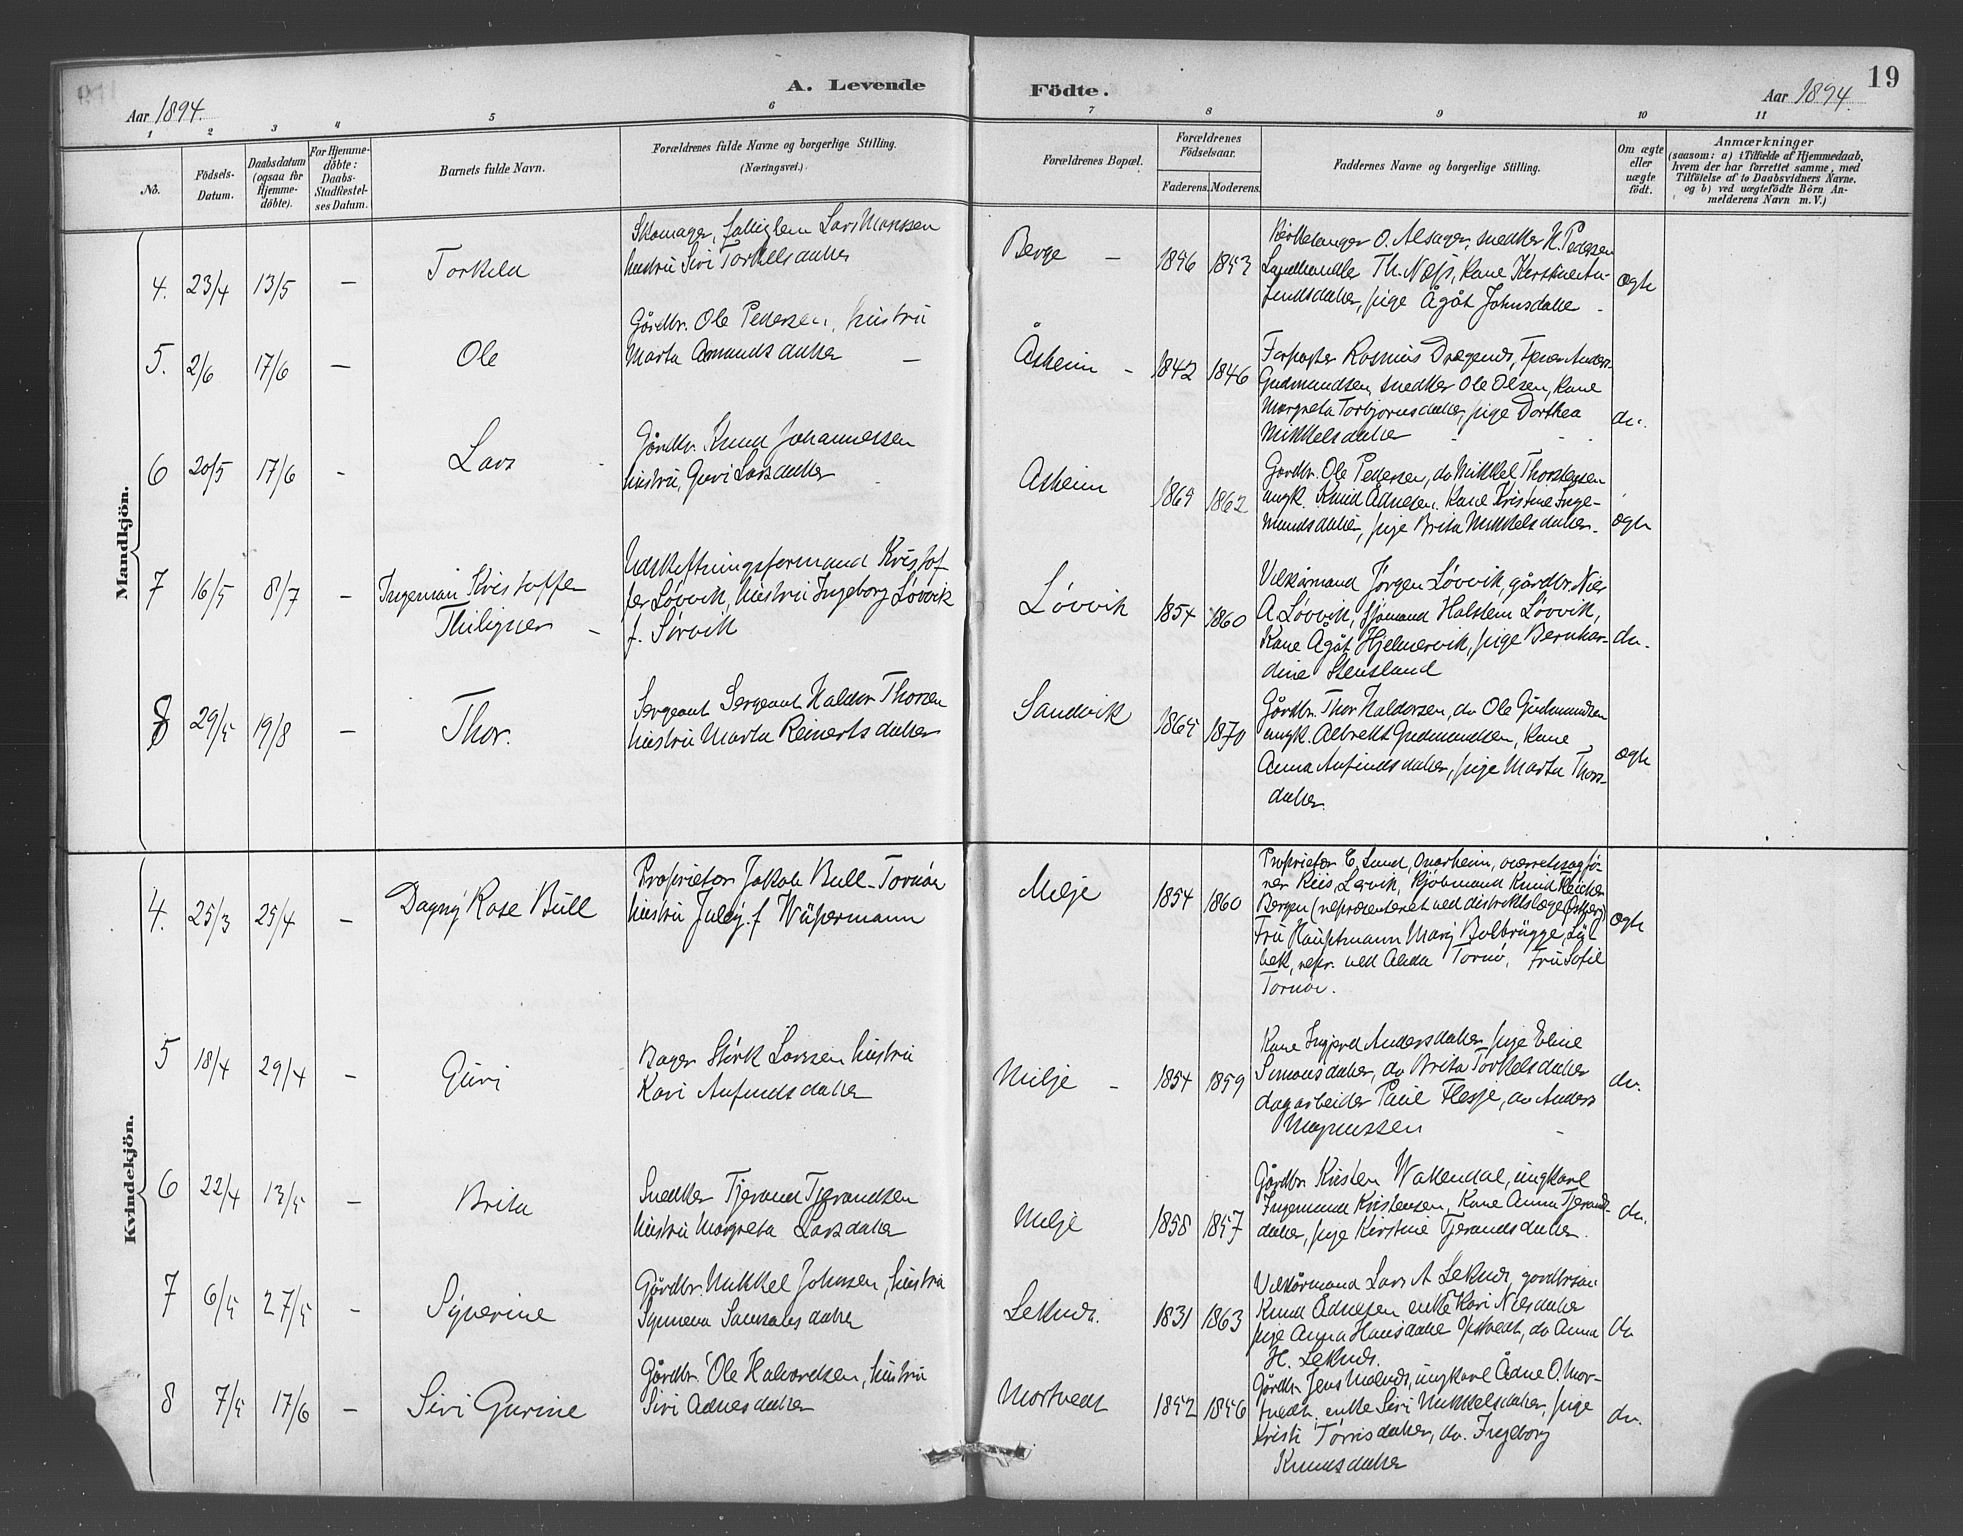 A. Levende Födte.
19
Aar 1894.
Aar 1894.
1 2 3 4 5 6 7 8 9 10 11
No.
Födsels-Datum.
Daabsdatum (ogsaa for Hjemme-döbte).
For Hjemme-döbte: Daabs-Stadfæstel-ses Datum.
Barnets fulde Navn.
Forældrenes fulde Navne og borgerlige Stilling.
(Næringsvei.)
Forældrenes Bopæl.
Forældrenes Födselsaar.
Faderens. Moderens.
Faddernes Navne og borgerlige Stilling.
Om ægte eller uægte födt.
Anmærkninger
(saasom: a) i Tilfælde af Hjemmedaab, hvem der har forrettet samme, med Tilföielse af to Daabsvidners Navne. og b) ved uægtefödte Börn An-melderens Navn m. V.)
Mandkjön.
4. 23/4 13/5 — Torkeld
Skomager, fattiglem Lars Monssen
hustru Siri Torkelsdatter
Berge — 1846 1853
Kirkesanger O. Alsager, snedker H. Pedersen
Landhandler Th. Næss, Kone
pige Ågåt Johnsdatter
ægte
5. 2/6 17/6 — Ole
Gårdbr. Ole Pedersen, hustru
Marta Amundsdatter —
Åsheim — 1842 1846
Forpagter Rasmus
Gudmundsen, snedker Ole Olsen, Kone
Margreta Torbjørnsdatter, pige Dorthea
Mikkelsdatter
do.
6 20/5 17/6 - Lars
Gårdbr. Knud Johannessen
hustru, Guri Larsdatter
Asheim 1869 1862
Gårdbr. Ole Pedersen, do Mikkel Thorstensen
ungk. Knud Ådnesen. Kone Kristine Inge-
mundsdatter, pige Brita Mikkelsdatter.
ægte
7 16/5 8/7 — Ingeman Kristoffer
Udskiftningsformand Kristof-
fer Løvvik, hustru Ingeborg Løvvik
f. Sørvik
Løvvik 1854 1860
Vilkårmand Jørgen Løvvik, gårdbr. Nils
A Løvvik, sjømand Halstein Løvvik,
Kone Ågåt Hjelmervik, pige Bernhar-
dine Stensland
do.
8 29/5 19/8 — Thor.
Sergeant Sergeant Haldor Thorsen
hustru Marta Reinertsdatter
Sandvik 1865 1870
Gårdbr. Thor Haldorsen, do Ole Gudmundsen
ungk. Albrekt Gudmundsen, Kone
Anna Anfindsdatter, pige Marta Thors-
datter.
ægte
Kvindekjön.
4. 25/3 25/4 — Dagny Rose Bull
Proprietær Jakob Bull-Tornøe
hustru July f.
Milje 1854 1860
Proprietær E. Lund, Onarheim, overretssagfø-
rer Riis, Lervik, Kjøbmand Knud
Bergen (repræsenteret ved distriktslæge
Fru Hauptmann Mary Bolbrügge, Lü-
bek, repr. ved Alida Tornø, Fru Sofie
Tornøe.
ægte
5 18/4 29/4 — Guri
Bager Størk Larssen hustru
Kari Anfindsdatter
Milje — 1854 1859
Kone Ingjerd Andersdatter, pige Eline
Simonsdatter, do Brita Torkelsdatter
dagarbeider Paul Flesje, do Anders
Magnussen
do.
6 22/4 13/5 — Brita
Snedker Tjerand Tjerandsen
hustru Margreta Larsdatter
Milje 1858 1857
Gårdbr Kristen Vattendal, ungkarl
Ingemund Kristensen, Kone Anna Tjerands-
datter, pige Kirstine Tjerandsdatter.
do.
7 6/5 27/5 - Syverine
Gårdbr. Mikkel Johnsen, hustru
Synneva Samsonsdatter
Leknes. 1831 1863
Vilkårmand Lars A Leknes, gårdbr.søn
Knud Ådnesen enke Kari Nilsdatter
pige Anna Hansdatter Opstvedt, do Anna
H. Leknes.
do
8 7/5 17/6 — Siri Gurine
Gårdbr. Ole Halvordsen, hustru
Siri Ådnesdatter
Mortvedt 1852 1856
Gårdbr. Jens Malnes, ungkarl Ådne O. Mor-
tvedt, enke Siri Mikkelsdatter, pige
Kristi Tørrisdatter, do. Ingeborg
Knudsdatter
do.